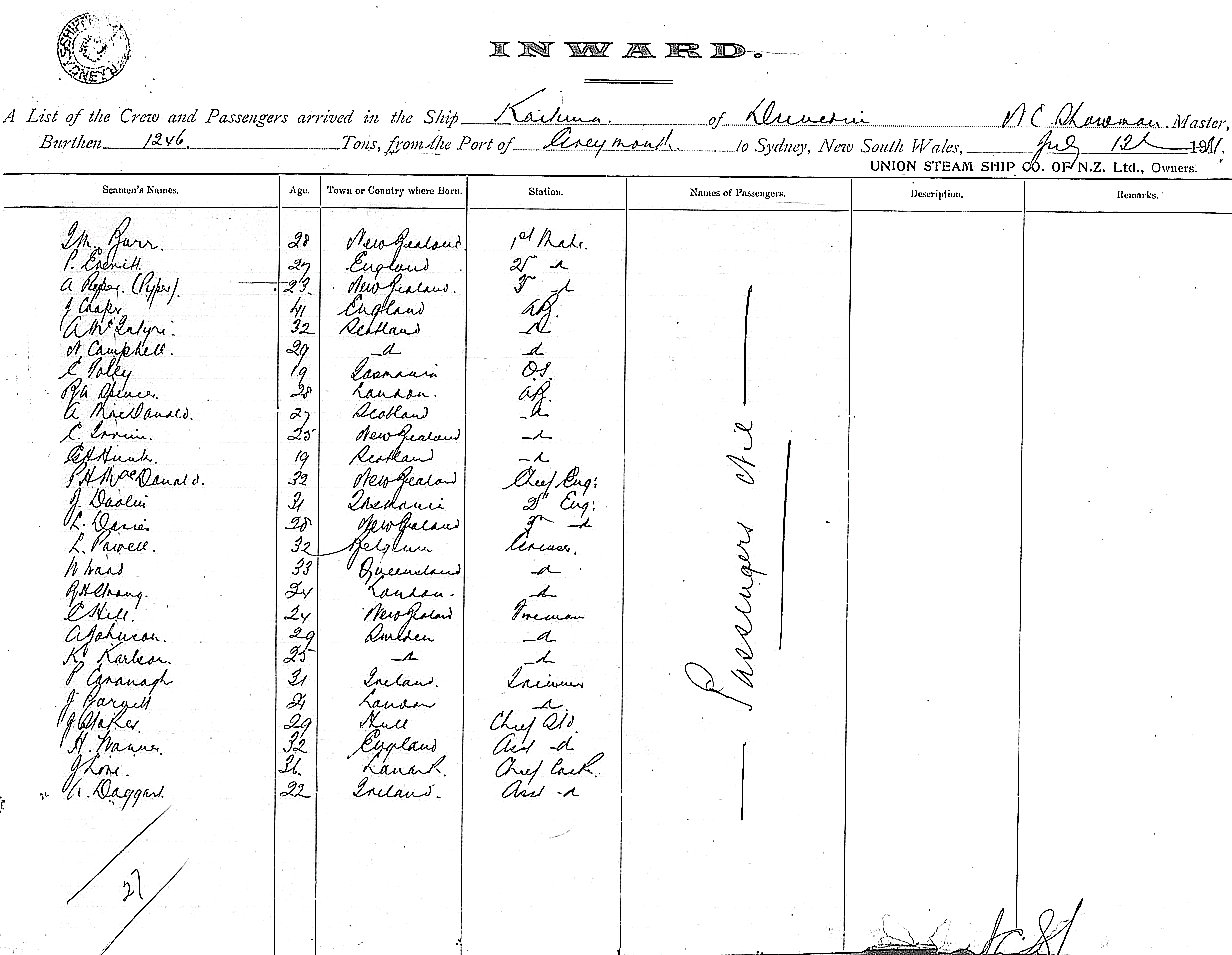 INWARD.
A List of the Crew and Passengers arrived in the Ship Kaituna of Dunedin N C Showman Master,
Burthen 1246 Tons, from the Port of Greymouth to Sydney, New South Wales, July 12th 1911.
UNION STEAM SHIP CO. OF N.Z. Ltd., Owners.
Seamen's Names. Age. Town or Country where Born. Station. Names of Passengers. Description. Remarks.
28 New Zealand 1st Mate.
P. Everitt 27 England 2d d
A (Pyper). 23 New Zealand. 3rd d
J Cooper 41 England AB.
A McIntyre. 32 Scotland d
N Campbell. 29 d d
C Polley 19 Tasmania OS
RA Spencer. 28 London. AB.
A MacDonald. 27 Scotland d
C. Irvine. 25 New Zealand d
Hunt 19 Scotland d
P H MacDonald. 32 New Zealand Chief Eng:
J. 31 Tasmania 2d Eng:
L. Davies 28 New Zealand 3rd d
L. Powell. 32 Belgium Greaser.
W Ward 33 Queensland d
24 London. d
C Hill. 24 New Zealand Fireman
A Johnson. 29 Sweden d
K. Karlson. 25 d d
P Cavanagh 31 Ireland. Trimmer
J 21 London d
J Stokes 29 Hull Chief Std.
H. 32 England Asst d
J Love. 36 Lanark. Chief Cook.
A. Daggart 22 Ireland. Asst d
Passengers Nil
27